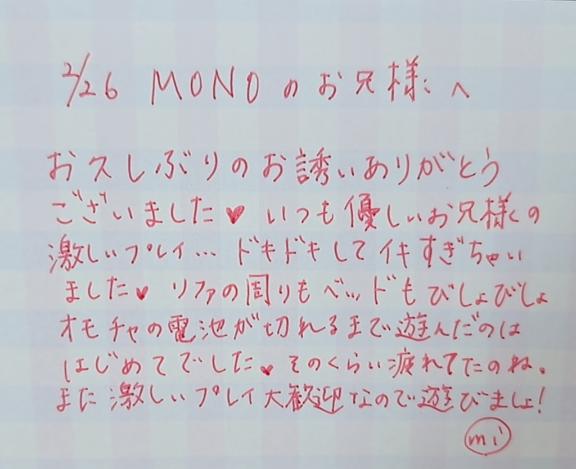 2/26 MONOのお兄様へ
お久しぶりのお誘いありがとう
ございました♥ いつも優しいお兄様の
激しいプレイ… ドキドキしてイキすぎちゃい
ました♥ ソファの周りもベッドもびしょびしょ
オモチャの電池が切れるまで遊んだのは
はじめてでした♥ そのくらい疲れてたのね。
また激しいプレイ大歓迎なので遊びましょ!
mi